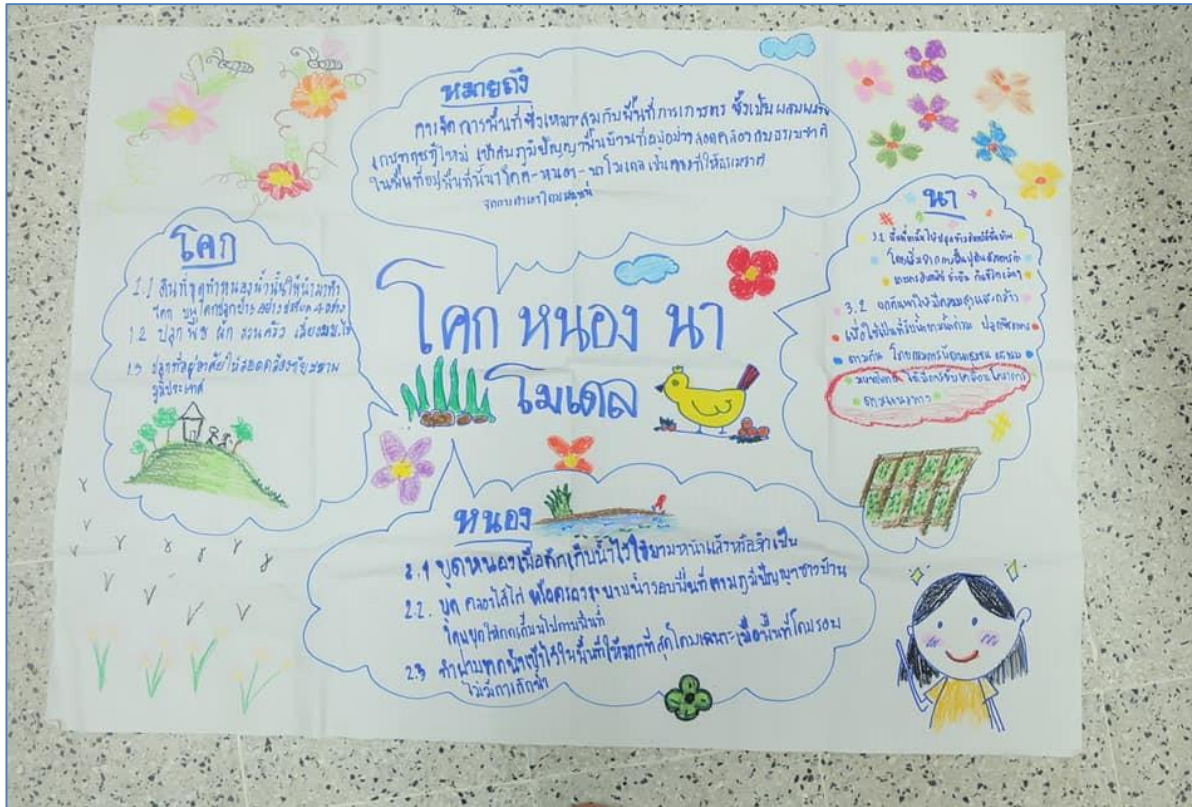 หมายถึง
การจัดการพื้นที่ซึ่งเหมาะสมกับพื้นที่การเกษตร ซึ่งเป็นผสมผสาน
เกษตรทฤษฎีใหม่ เข้ากับภูมิปัญญาพื้นบ้านที่อยู่อย่างสอดคล้องกับธรรมชาติ
ในพื้นที่อยู่พื้นที่นั้นๆ โคก-หนอง-นาโมเดล เป็นการที่ให้ธรรมชาติ
โคก
1.1 ดินที่ขุดทำหนองน้ำนั้นให้นำมาทำ
โคก บนโคกปลูกป่า 3 อย่าง ประโยชน์ 4 อย่าง
1.2 ปลูก พืช ผัก สวนครัว เลี้ยง
1.3 ปลูกที่อยู่อาศัยให้สอดคล้องกับสภาพ
ภูมิประเทศ
โคก หนอง นา
โมเดล
นา
3.1 พื้นที่นานั้นให้ปลูกข้าวอินทรีย์พื้นบ้าน
โดยเริ่มจากการฟื้นฟูดิน
3.2 ยกคันนาให้มีความสูงและกว้าง
เพื่อใช้เป็นที่รับน้ำยามน้ำท่วม ปลูกพืชอาหาร
ตามคัน
หนอง
2.1 ขุดหนองเพื่อกักเก็บน้ำไว้ใช้ยามหน้าแล้งหรือจำเป็น
2.2. ขุด คลองไส้ไก่ หรือคลองระบายน้ำรอบพื้นที่ตามภูมิปัญญาชาวบ้าน
โดยขุดให้คดเคี้ยวไปตามพื้นที่
2.3 ทำฝายทดน้ำเข้าไว้ในพื้นที่ให้มากที่สุดโดยเฉพาะเมื่อพื้นที่โดยรอบ
ไม่มีการกักน้ำ